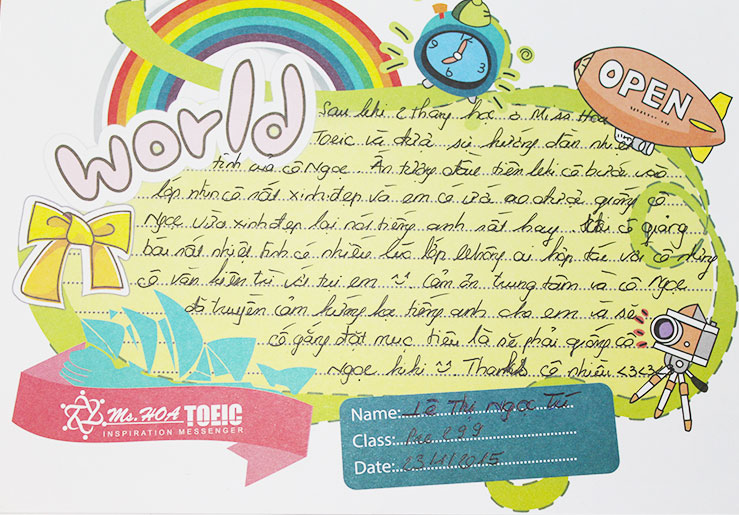 world
OPEN
9 3 6
Sau khi 2 tháng học ở Miss Hoa
Toeic và được sự hướng dẫn nhiệt
tình của cô Ngọc. Ấn tượng đầu tiên khi cô bước vào
lớp nhìn cô rất xinh đẹp và em có ước ao được giống cô
Ngọc vừa xinh đẹp lại nói tiếng anh rất hay. Khi cô giảng
bài rất nhiệt tình có nhiều lúc lớp không ai hợp tác với cô nhưng
cô vẫn kiên trì với tụi em Cảm ơn trung tâm và cô Ngọc
đã truyền cảm hứng học tiếng anh cho em và sẽ
cố gắng đặt mục tiêu là sẽ phải giống cô
Ngọc kiki Thanks cô nhiều <3<3<3
Ms. HOA TOEIC
INSPIRATION MESSENGER
Name: Lê Thị Ngọc Tú
Class: Pre 299
Date: 2015